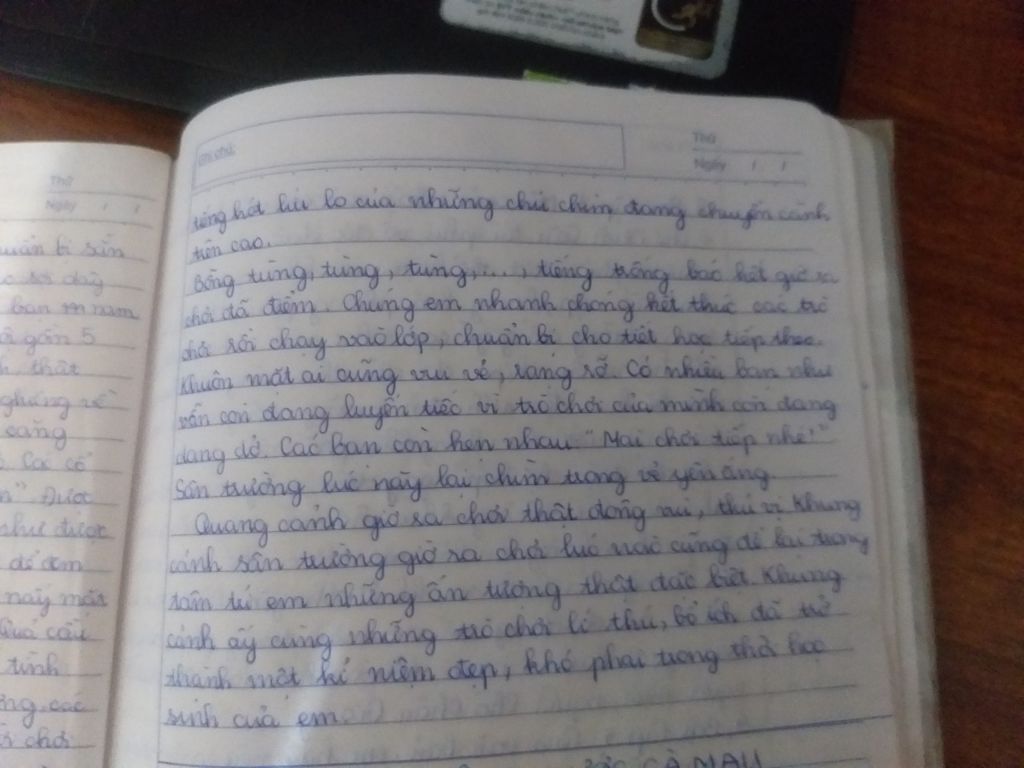 Thứ
Ngày / /
uẩn bị sẵn
sợi dây
bạn nam
gồm 5
thật
về
càng
Các cổ
n" Được
như được
để đem
này mắt
Quả cầu
tình
các
chơi
Ghi chú:
Thứ
Ngày / /
tiếng hót líu lo của những chú chim đang chuyền cành
trên cao.
Bỗng tùng, tùng, tùng,..., tiếng trống báo hết giờ ra
chơi đã điểm. Chúng em nhanh chóng kết thúc các trò
chơi rồi chạy vào lớp, chuẩn bị cho tiết học tiếp theo.
Khuôn mặt ai cũng vui vẻ, rạng rỡ. Có nhiều bạn như
vẫn còn đang luyến tiếc vì trò chơi của mình còn dang
dang dở. Các bạn còn hẹn nhau "Mai chơi tiếp nhé!"
Sân trường lúc này lại chìm trong vẻ yên ắng.
Quang cảnh giờ ra chơi thật đông vui, thú vị. Khung
cảnh sân trường giờ ra chơi lúc nào cũng để lại trong
tâm trí em những ấn tượng thật đặc biệt. Khung
cảnh ấy cùng những trò chơi lí thú, bổ ích đã trở
thành một kỉ niệm đẹp, khó phai trong thời học
sinh của em
CÀ MAU